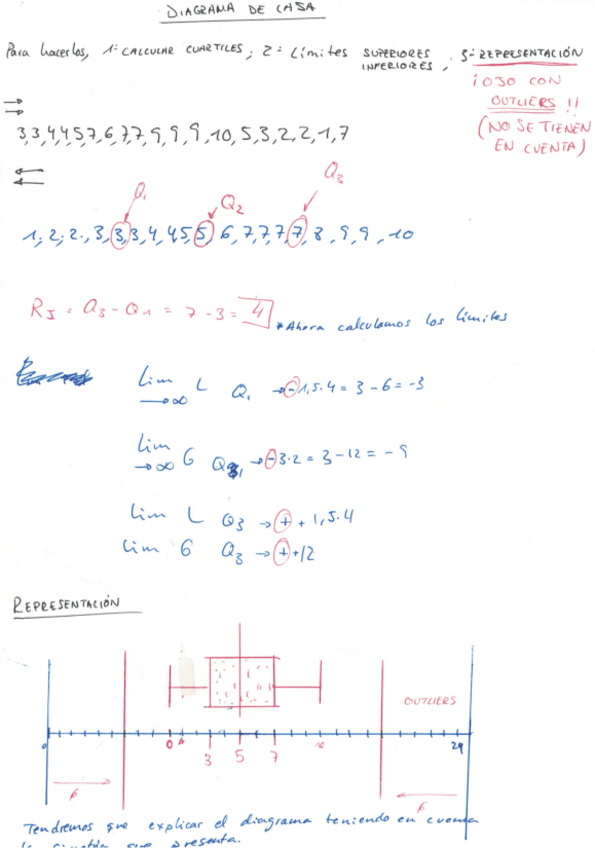 DIAGRAMA DE CASA
Para hacerlos, 1º CALCULAR CUARTILES; 2º Límites SUPERIORES INFERIORES, 3º REPRESENTACIÓN
¡OJO CON
OUTLIERS!!
(NO SE TIENEN
EN CUENTA)
3,3,4,4,5,7,6,7,7,9,9,9,10,5,3,2,2,1,7
Q1 Q2 Q3
1, 2, 2, 3, 3, 3, 4, 4, 5, 5, 6, 7, 7, 7, 7, 8, 9, 9, 10
RI = Q3 - Q1 = 7 - 3 = 4
*Ahora calculamos los límites
Lim →∞ L Q1 → -1,5·4 = 3 - 6 = -3
Lim →∞ G Q1 → -3·2 = 3 - 12 = -9
Lim L Q3 → + + 1,5·4
Lim G Q3 → + +12
REPRESENTACIÓN
OUTLIERS
0 3 5 7 10 29
Tendremos que explicar el diagrama teniendo en cuenta
que presenta.